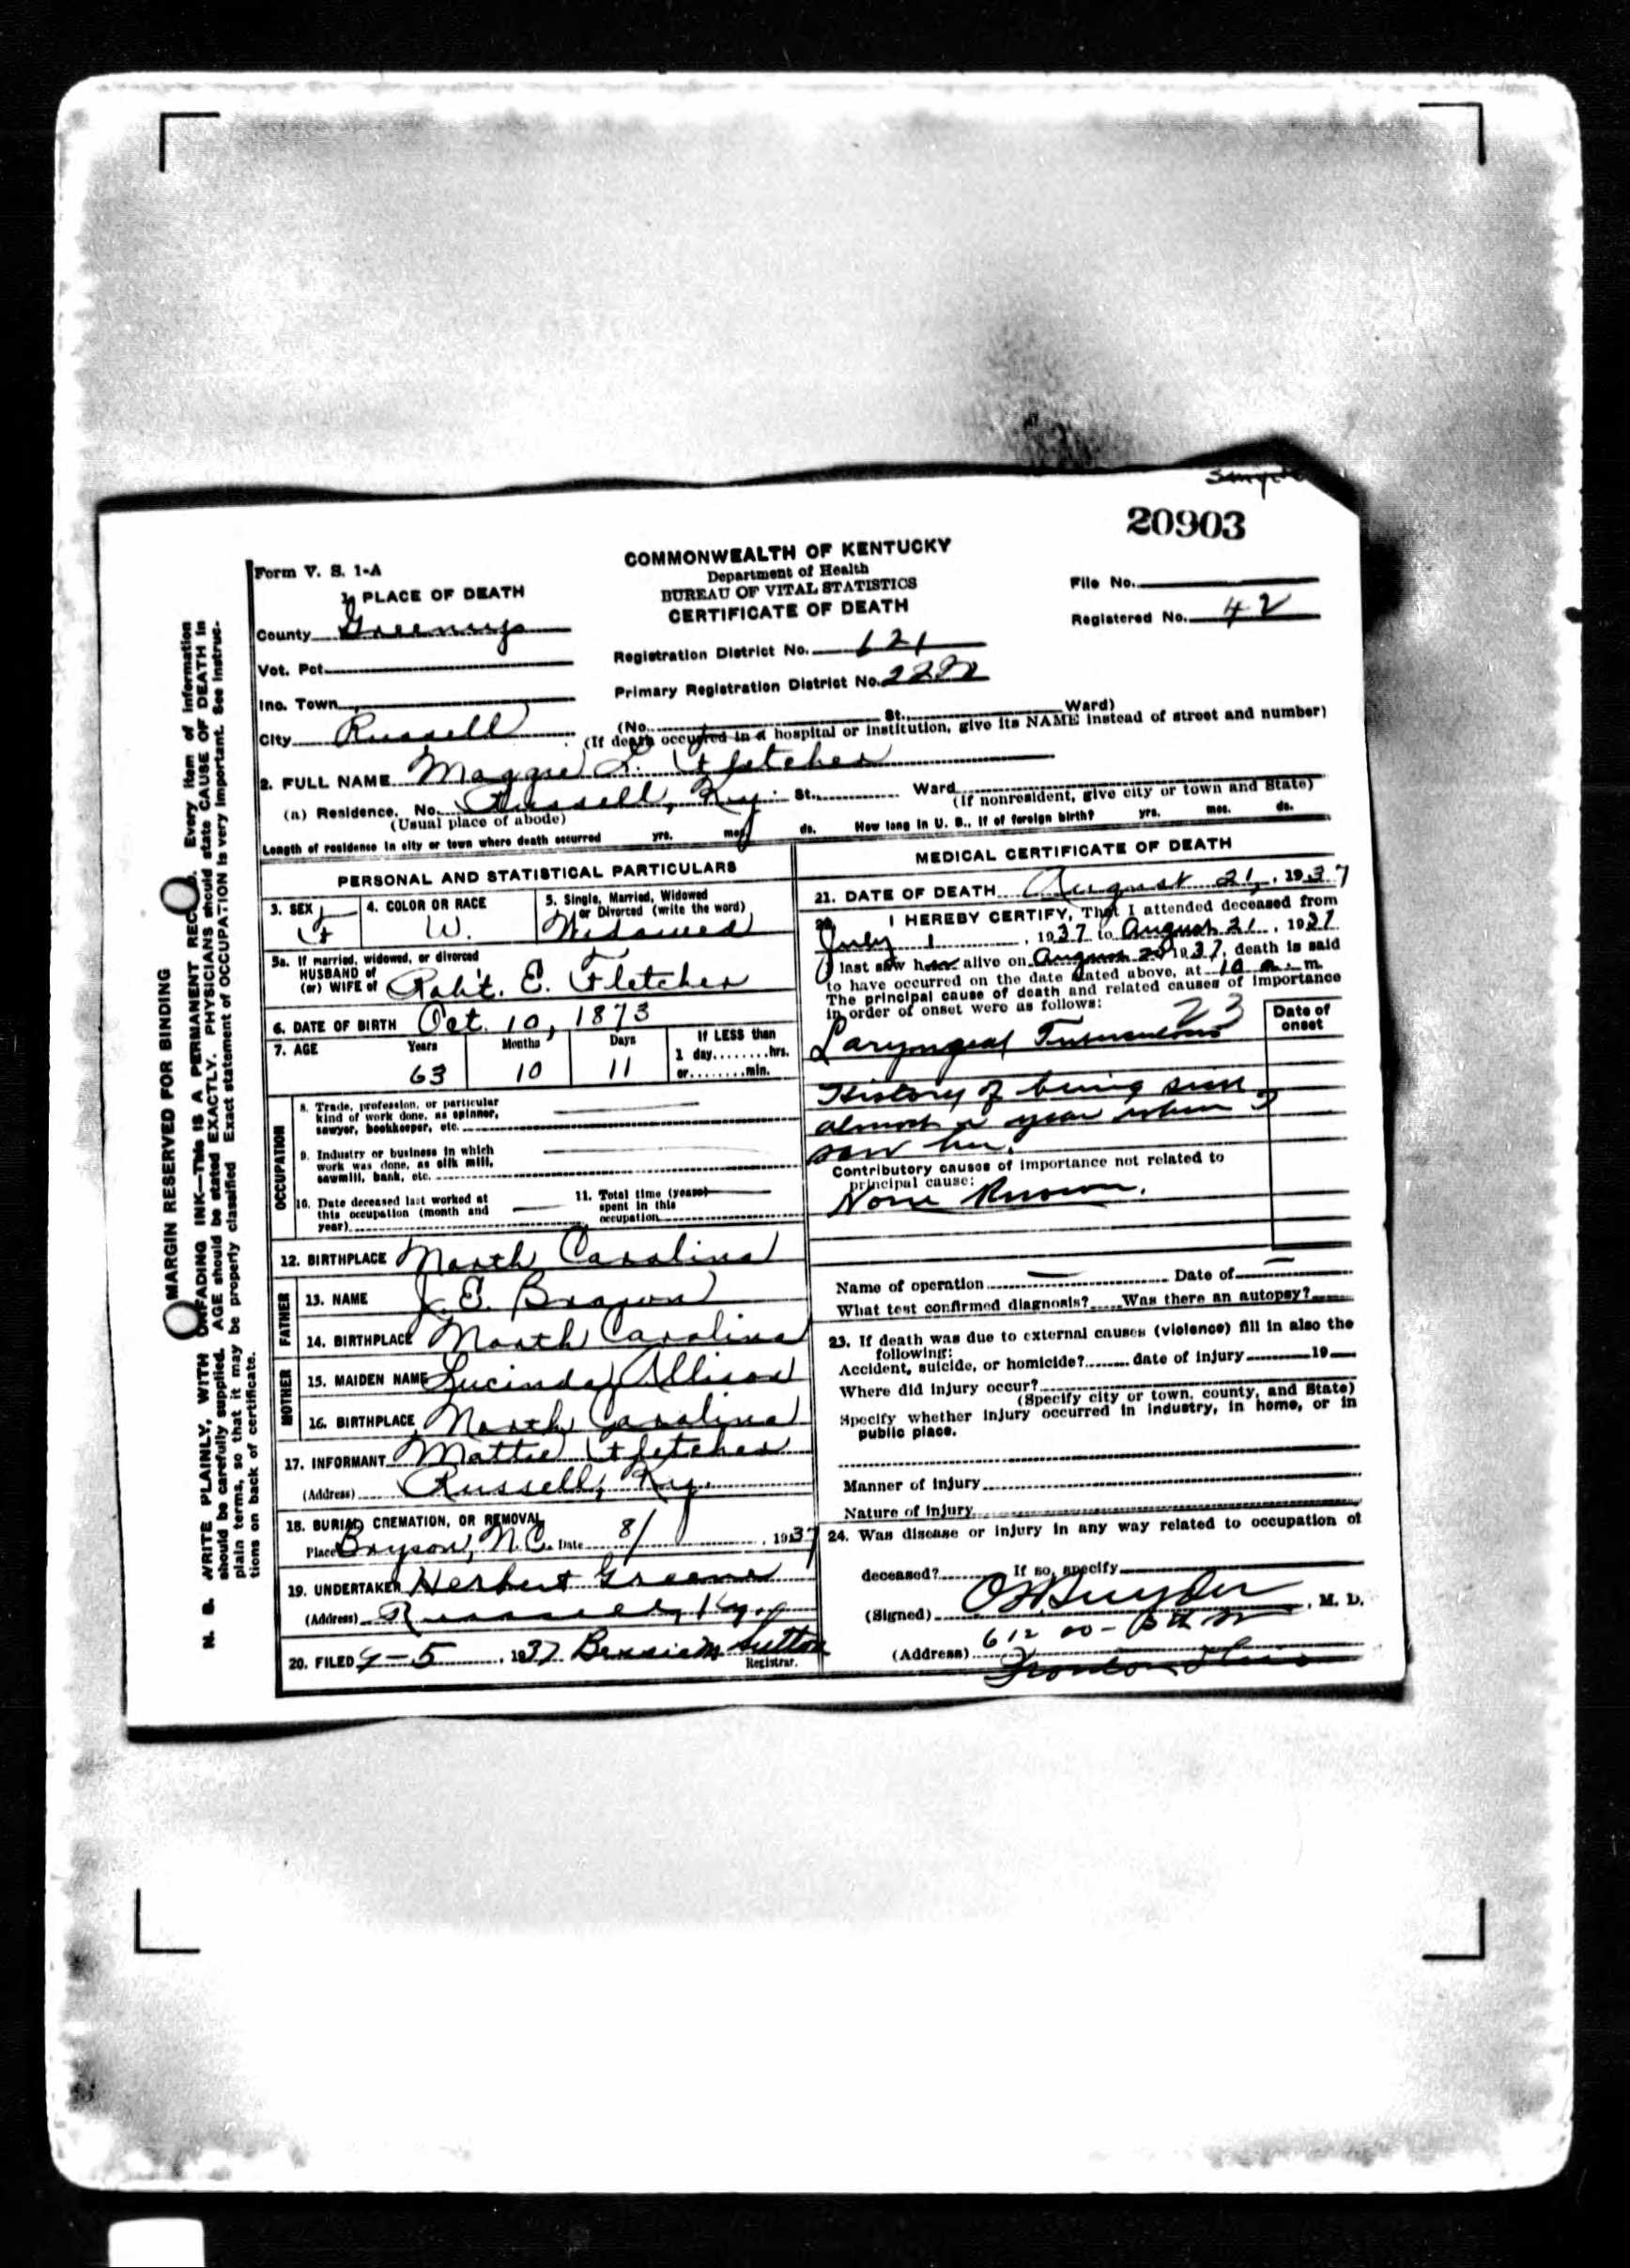 20903
Form V. S. 1-A
COMMONWEALTH OF KENTUCKY
Department of Health
BUREAU OF VITAL STATISTICS
CERTIFICATE OF DEATH
File No.
Registered No. 42
1. PLACE OF DEATH
County Greenup
Vot. Pct.
Inc. Town
City Russell
Registration District No. 621
Primary Registration District No.
(No. St., Ward)
(If death occurred in a hospital or institution, give its NAME instead of street and number)
2. FULL NAME Maggie L. Fletcher
(a) Residence. No. Russell, Ky. St., Ward
(Usual place of abode)
(If nonresident, give city or town and State)
Length of residence in city or town where death occurred yrs. mos. ds. How long in U. S., if of foreign birth? yrs. mos. ds.
PERSONAL AND STATISTICAL PARTICULARS
3. SEX F
4. COLOR OR RACE W.
5. Single, Married, Widowed or Divorced (write the word) Widowed
5a. If married, widowed, or divorced
HUSBAND of
(or) WIFE of Robt. E. Fletcher
6. DATE OF BIRTH Oct. 10, 1873
7. AGE Years 63 Months 10 Days 11 If LESS than 1 day hrs. or min.
OCCUPATION
8. Trade, profession, or particular
kind of work done, as spinner,
sawyer, bookkeeper, etc.
9. Industry or business in which
work was done, as silk mill,
sawmill, bank, etc.
10. Date deceased last worked at
this occupation (month and
year)
11. Total time (years)
spent in this
occupation
12. BIRTHPLACE North Carolina
FATHER
13. NAME J. E. Brown
14. BIRTHPLACE North Carolina
MOTHER
15. MAIDEN NAME Lucinda Allison
16. BIRTHPLACE North Carolina
17. INFORMANT Mattie Fletcher
(Address) Russell, Ky.
18. BURIAL, CREMATION, OR REMOVAL
Place Bryson, N.C. Date 8/ , 1937
19. UNDERTAKER Herbert Greene
(Address) Russell, Ky.
20. FILED 9-5, 1937 Bessie M. Sutton
Registrar.
MEDICAL CERTIFICATE OF DEATH
21. DATE OF DEATH August 21, 1937
22. I HEREBY CERTIFY, That I attended deceased from
July 1, 1937 to August 21, 1937
I last saw her alive on August 20 1937, death is said
to have occurred on the date stated above, at 10 a. m.
The principal cause of death and related causes of importance
in order of onset were as follows:
Date of onset
23
Laryngeal
History of being sick
almost a year when I
saw her.
Contributory causes of importance not related to
principal cause:
None Known.
Name of operation Date of
What test confirmed diagnosis? Was there an autopsy?
23. If death was due to external causes (violence) fill in also the
following:
Accident, suicide, or homicide? date of injury 19
Where did injury occur?
(Specify city or town, county, and State)
Specify whether injury occurred in industry, in home, or in
public place.
Manner of injury
Nature of injury
24. Was disease or injury in any way related to occupation of
deceased? If so, specify
(Signed) , M. D.
(Address) 612
Ironton Ohio
MARGIN RESERVED FOR BINDING
N. B. WRITE PLAINLY, WITH UNFADING INK—This IS A PERMANENT RECORD. Every item of information
should be carefully supplied. AGE should be stated EXACTLY. PHYSICIANS should state CAUSE OF DEATH in
plain terms, so that it may be properly classified. Exact statement of OCCUPATION is very important. See instruc-
tions on back of certificate.